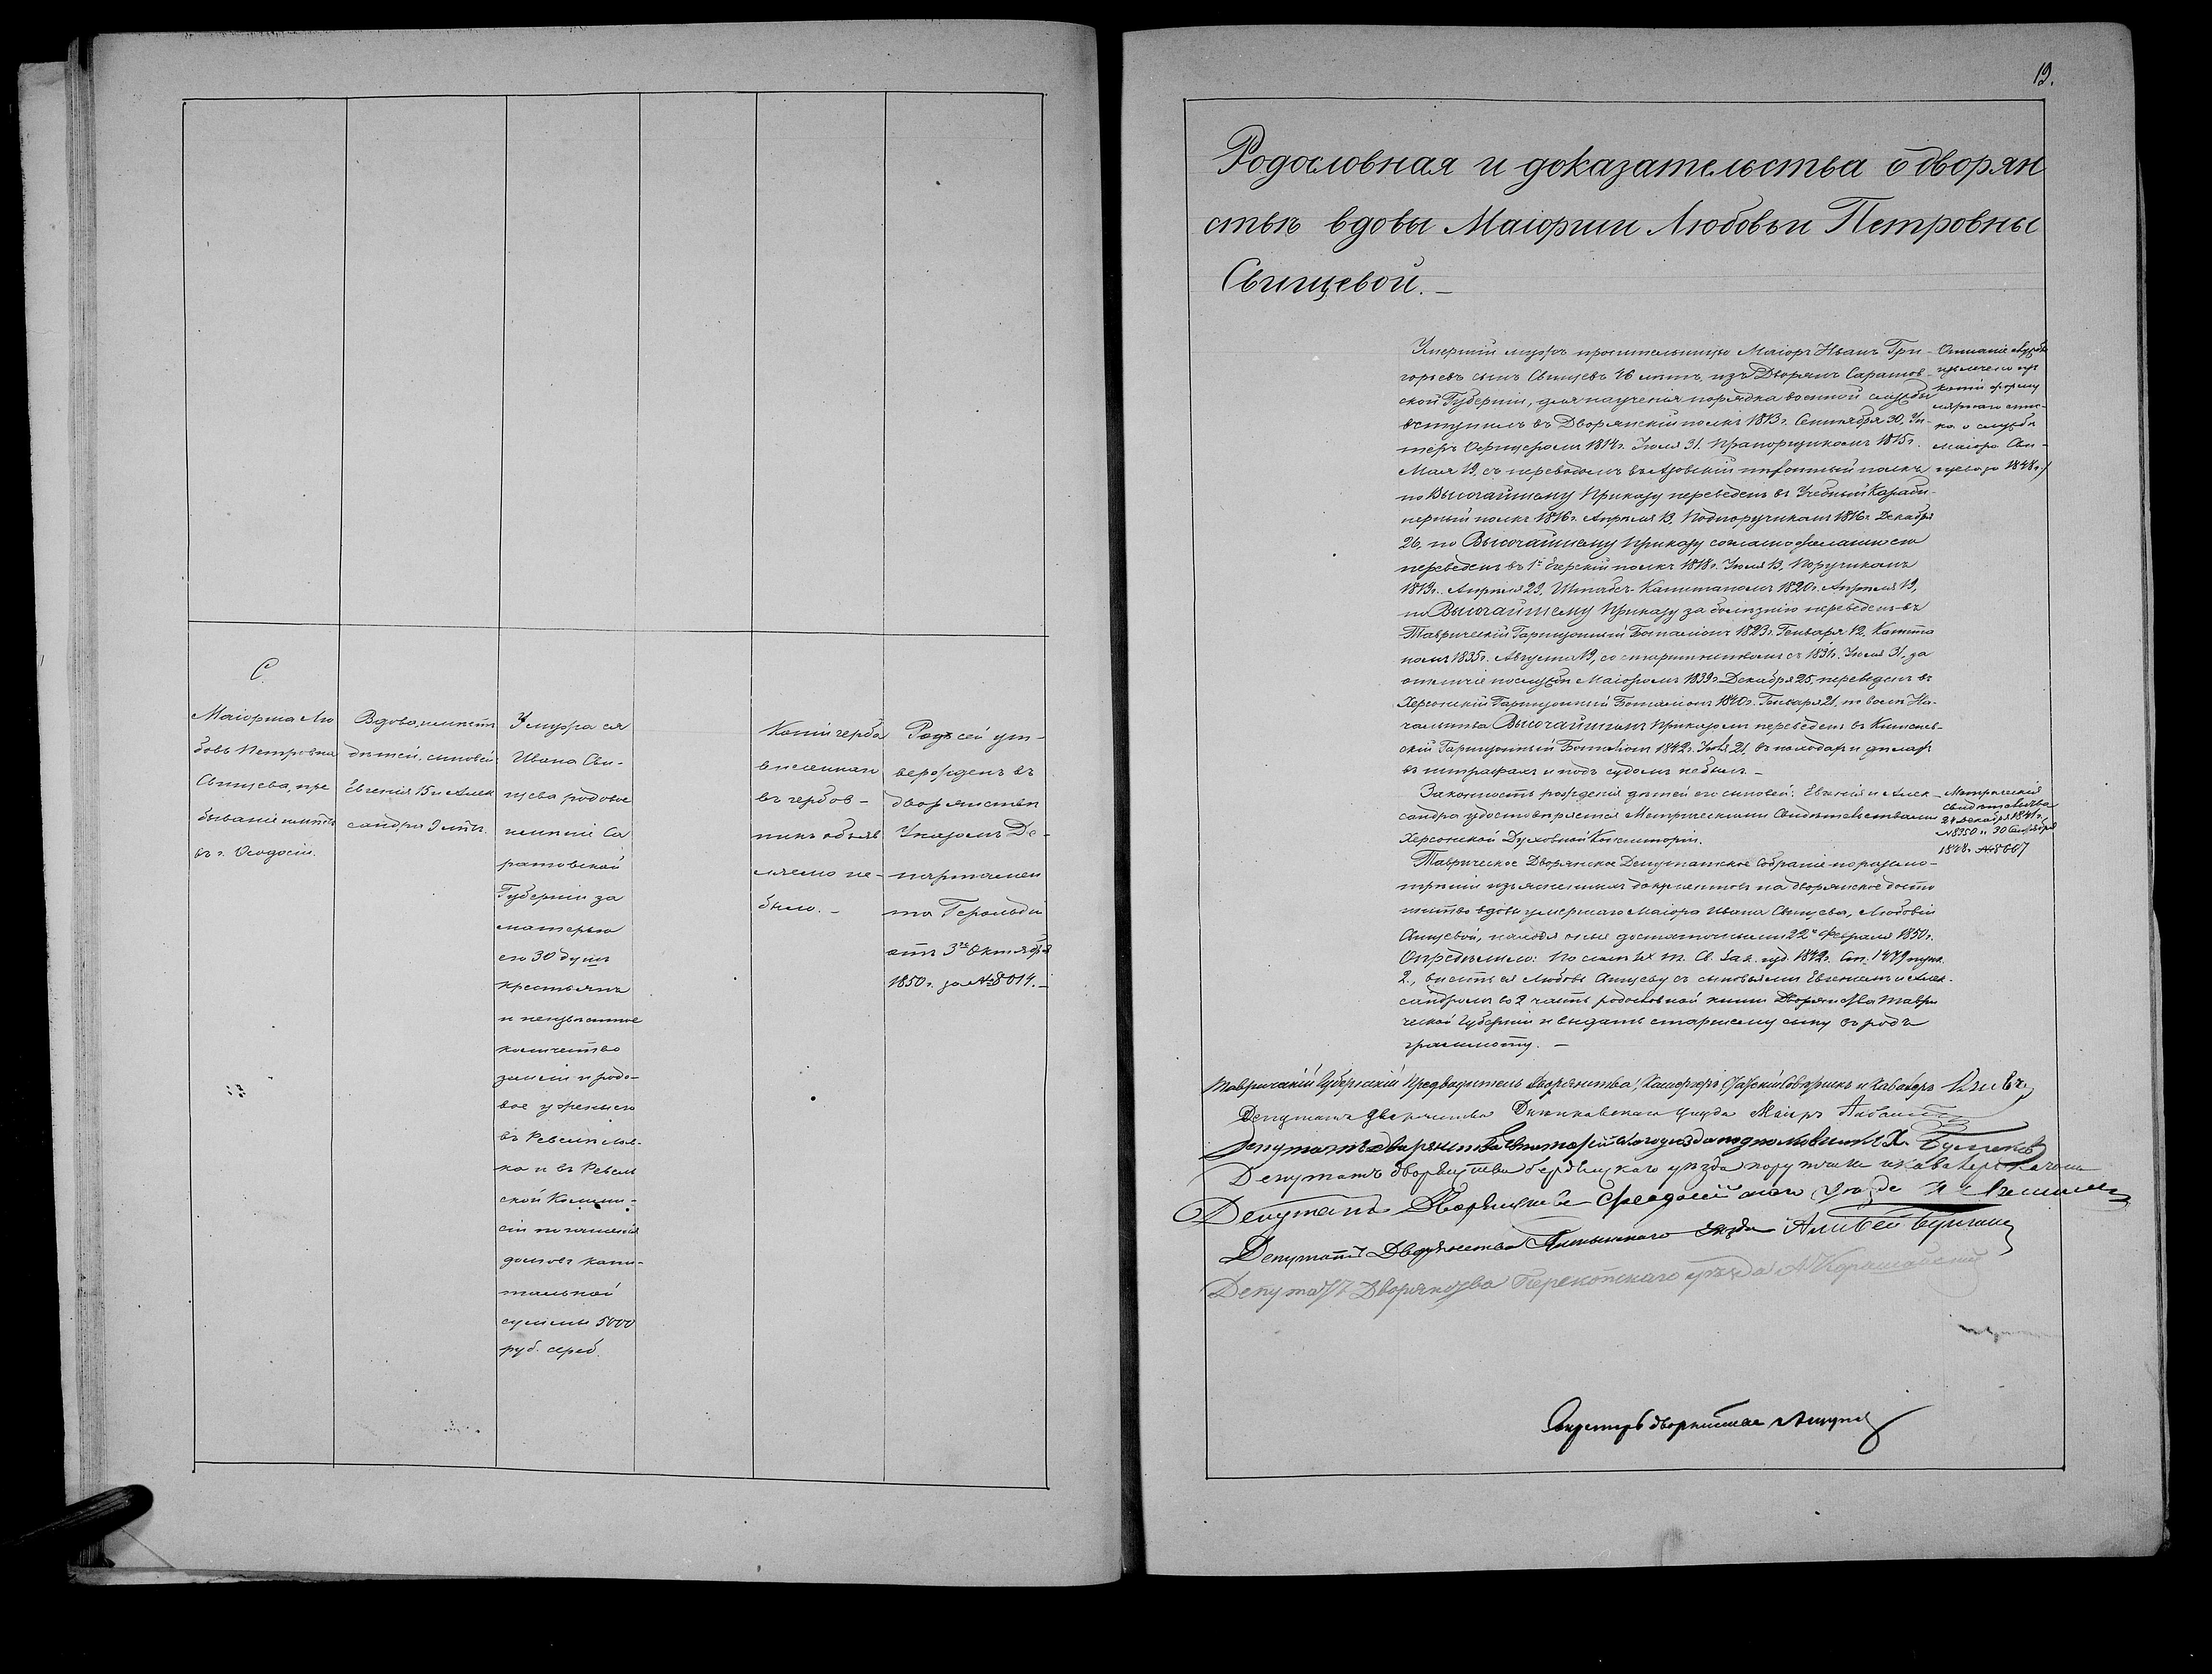 С.
Маіорша Лю
бовь Петровна
Свищева, пре
бываніе имѣетъ
въ г. Ѳеодосіи.
Вдова, имѣетъ
дѣтей, сыновей
Евгенія 15 и Алек
сандра 9 лѣтъ.
У мужа ея
Ивана Сви-
щева родовое
имѣніе Са
ратовской
Губерніи за
матерью
его 30 душъ
крестьянъ
и неизвѣстное
количество
земли и родо-
вое у жены его
въ Ревелѣ
и въ Ревель
ской Коммис-
сіи погашенія
долговъ капи-
тальной
суммы 5000
руб. сереб.
Копіи герба
внесенная
въ гербов-
никъ объяв
ляемо не-
было. —
Родъ сей ут-
вержденъ въ
дворянствѣ
Указомъ Де-
партамен
та Герольдіи
отъ 3го Октября
1850 г. за №8014. —
19.
Родословная и доказательства о дворян
ствѣ вдовы Маіорши Любовьи Петровны
Свищевой. —
Умершій мужъ просительницы Маіоръ Иванъ Гри-
горьевъ сынъ Свищевъ 46 лѣтъ, изъ Дворянъ Саратов-
ской Губерніи, для изученія порядка военной службы
вступилъ въ Дворянскій полкъ 1813 г. Сентября 30, Ун-
теръ Офицеромъ 1814 г. Іюля 31. Прапорщикомъ 1815 г.
Мая 19, съ переводомъ въ Азовскій пѣхотный полкъ
по Высочайшему Приказу переведенъ въ Учебный Караби-
нерный полкъ 1816 г. Апрѣля 13, Подпоручикомъ 1816 г. Декабря
26, по Высочайшему Приказу согласно желанію его
переведенъ въ 1й Егерскій полкъ 1818 г. Іюля 13, Поручикомъ
1819 г. Апрѣля 29, Штабсъ-Капитаномъ 1820 г. Апрѣля 19,
по Высочайшему Приказу за болѣзнію переведенъ въ
Таврическій Гарнизонный Баталіонъ 1823 г. Генваря 12, Капита
номъ 1835 г. Августа 19, со старшинствомъ съ 1831 г. Іюля 31, за
отличіе по службѣ Маіоромъ 1839 г. Декабря 25, переведенъ въ
Херсонскій Гарнизонный Баталіонъ 1840 г. Генваря 21, по волѣ На-
чальства Высочайшимъ Приказомъ переведенъ въ Кишенев-
скій Гарнизонный Баталіонъ 1842 г. Іюля 21, въ походахъ и дѣлахъ
въ штрафахъ и подъ судомъ не былъ. —
Законность рожденія дѣтей его сыновей: Евгенія и Алек-
сандра удостовѣряется Метрическими Свидѣтельствами
Херсонской Духовной Консисторіи.
Таврическое Дворянское Депутатское Собраніе по разсмо-
трѣніи изъясненныхъ документовъ на дворянское досто
инство вдовы умершаго Маіора Ивана Свищева, Любовіи
Свищевой, находя оныя достаточными 22го Февраля 1850 г.
Опредѣлило: По силѣ IX т. Св. Зак. изд. 1842 г. Ст. 1479 пунк.
2, внесть ея Любовь Свищеву съ сыновьями Евгеніемъ и Алек-
сандромъ во 2 часть родословной книги Дворянства Таври
ческой Губерніи и выдать старшему сыну въ родѣ
грамоту. —
Описаніе службы
копіи форму
лярнаго спис-
ка о службѣ
маіора Сви-
щева за 1848 г.
Метрическія
Свидѣтельства
24 Декабря 1841 г.
№8950 и 30 Сентября
1848 г. №8607
Таврическій Губернскій Предводитель Дворянства, Камергеръ, Статскій Совѣтникъ и Кавалеръ
Депутатъ Дворянства уѣзда Маіоръ
Депутатъ Дворянства Евпаторійскаго уѣзда подполковникъ
Депутатъ Дворянства Бердянскаго уѣзда поручикъ и кавалеръ
Депутатъ Дворянства Феодосійскаго уѣзда
Депутатъ Дворянства Ялтинскаго уѣзда Али Бей
Депутатъ Дворянства Перекопскаго уѣзда А. Карашайскій
Секретарь дворянства